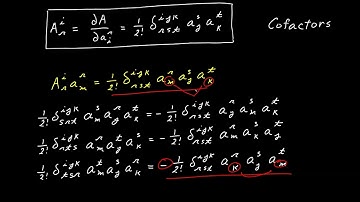 A^i_r = ∂A/∂a^r_i = 1/2! δ^{ijk}_{rst} a^s_j a^t_k Cofactors
A^i_r a^r_m = 1/2! δ^{ijk}_{rst} a^r_m a^s_j a^t_k
1/2! δ^{ijk}_{srt} a^s_m a^r_j a^t_k = - 1/2! δ^{ijk}_{rst} a^r_j a^s_m a^t_k
1/2! δ^{ijk}_{rts} a^r_m a^t_j a^s_k = - 1/2! δ^{ijk}_{rst} a^r_m a^s_k a^t_j
1/2! δ^{ijk}_{tsr} a^t_m a^s_j a^r_k = - 1/2! δ^{ijk}_{rst} a^r_k a^s_j a^t_m